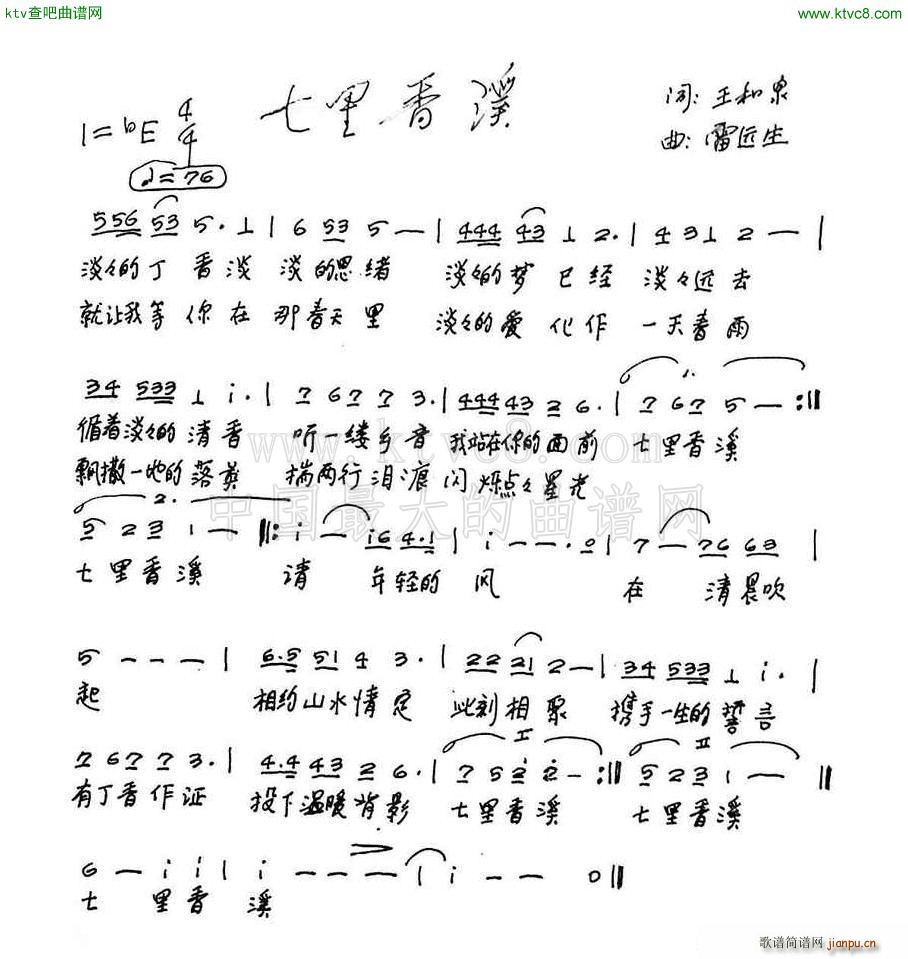 ktv查吧曲谱网 www.ktvc8.com
七里香溪
词: 王和泉
曲: 雷远生
1=bE 4/4
♩=76
556 53 5. 1 | 6 53 5 — | 444 43 1 2. | 4 3 1 2 — |
淡々的丁香淡 淡的思绪 淡々的梦已经 淡々远去
就让我等你在 那春天里 淡々的爱化作 一天春雨
34 533 1 i. | 7 67 7 3. | 444 43 2 6. | 7 67 5 — :||
1.
循着淡々的清香 听一缕乡音 我站在你的面前 七里香溪
飘撒一地的落英 揣两行泪痕 闪烁点々星光
2.
5 2 3 1 — ||: i — i6 4.1 | i — — .0 | 7 — 76 63 |
七里香溪 请 年轻的 风 在 清晨吹
5 — — — | 6.5 51 4 3. | 22 21 2 — | 34 533 1 i. |
起 相约山水情定 此刻相聚 携手一生的誓言
I II
7 67 7 3. | 4.4 43 2 6. | 7 5 2 2. — :|| 5 2 3 1 — ||
有丁香作证 投下温暖背影 七里香溪 七里香溪
6 — i i | i — — — | i — — 0 ||
七 里香 溪
www.ktvc8.com
中国最大的曲谱网
歌谱简谱网 jianpu.cn